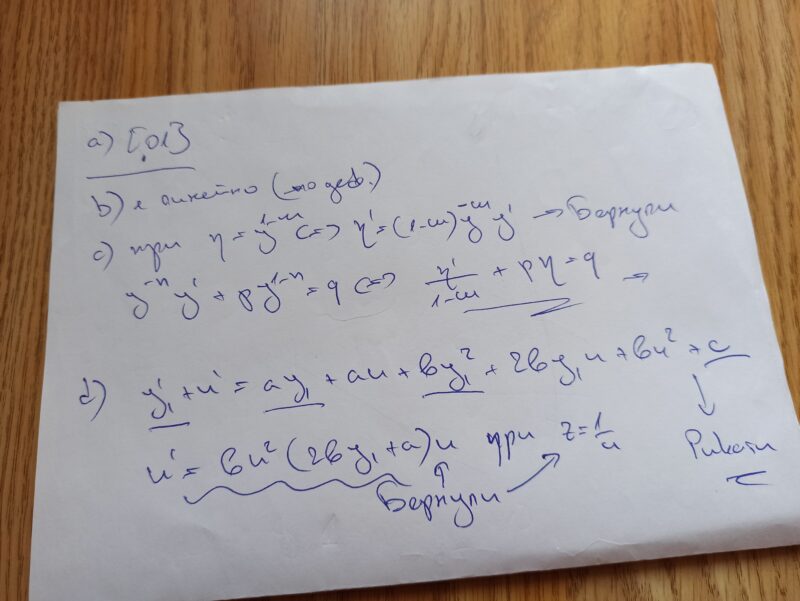 a) [.01]
b) е линейно (по деф.)
c) при η = y^{1-m} <=> η' = (1-m) y^{-m} y' → Бернули
y^{-n} y' + p y^{1-n} = q <=> η'/(1-m) + pη = q →
d) y₁' + u' = ay₁ + au + by₁² + 2by₁u + bu² + c
↓
u' = bu² (2by₁ + a)u при z = 1/u Рикати
Бернули